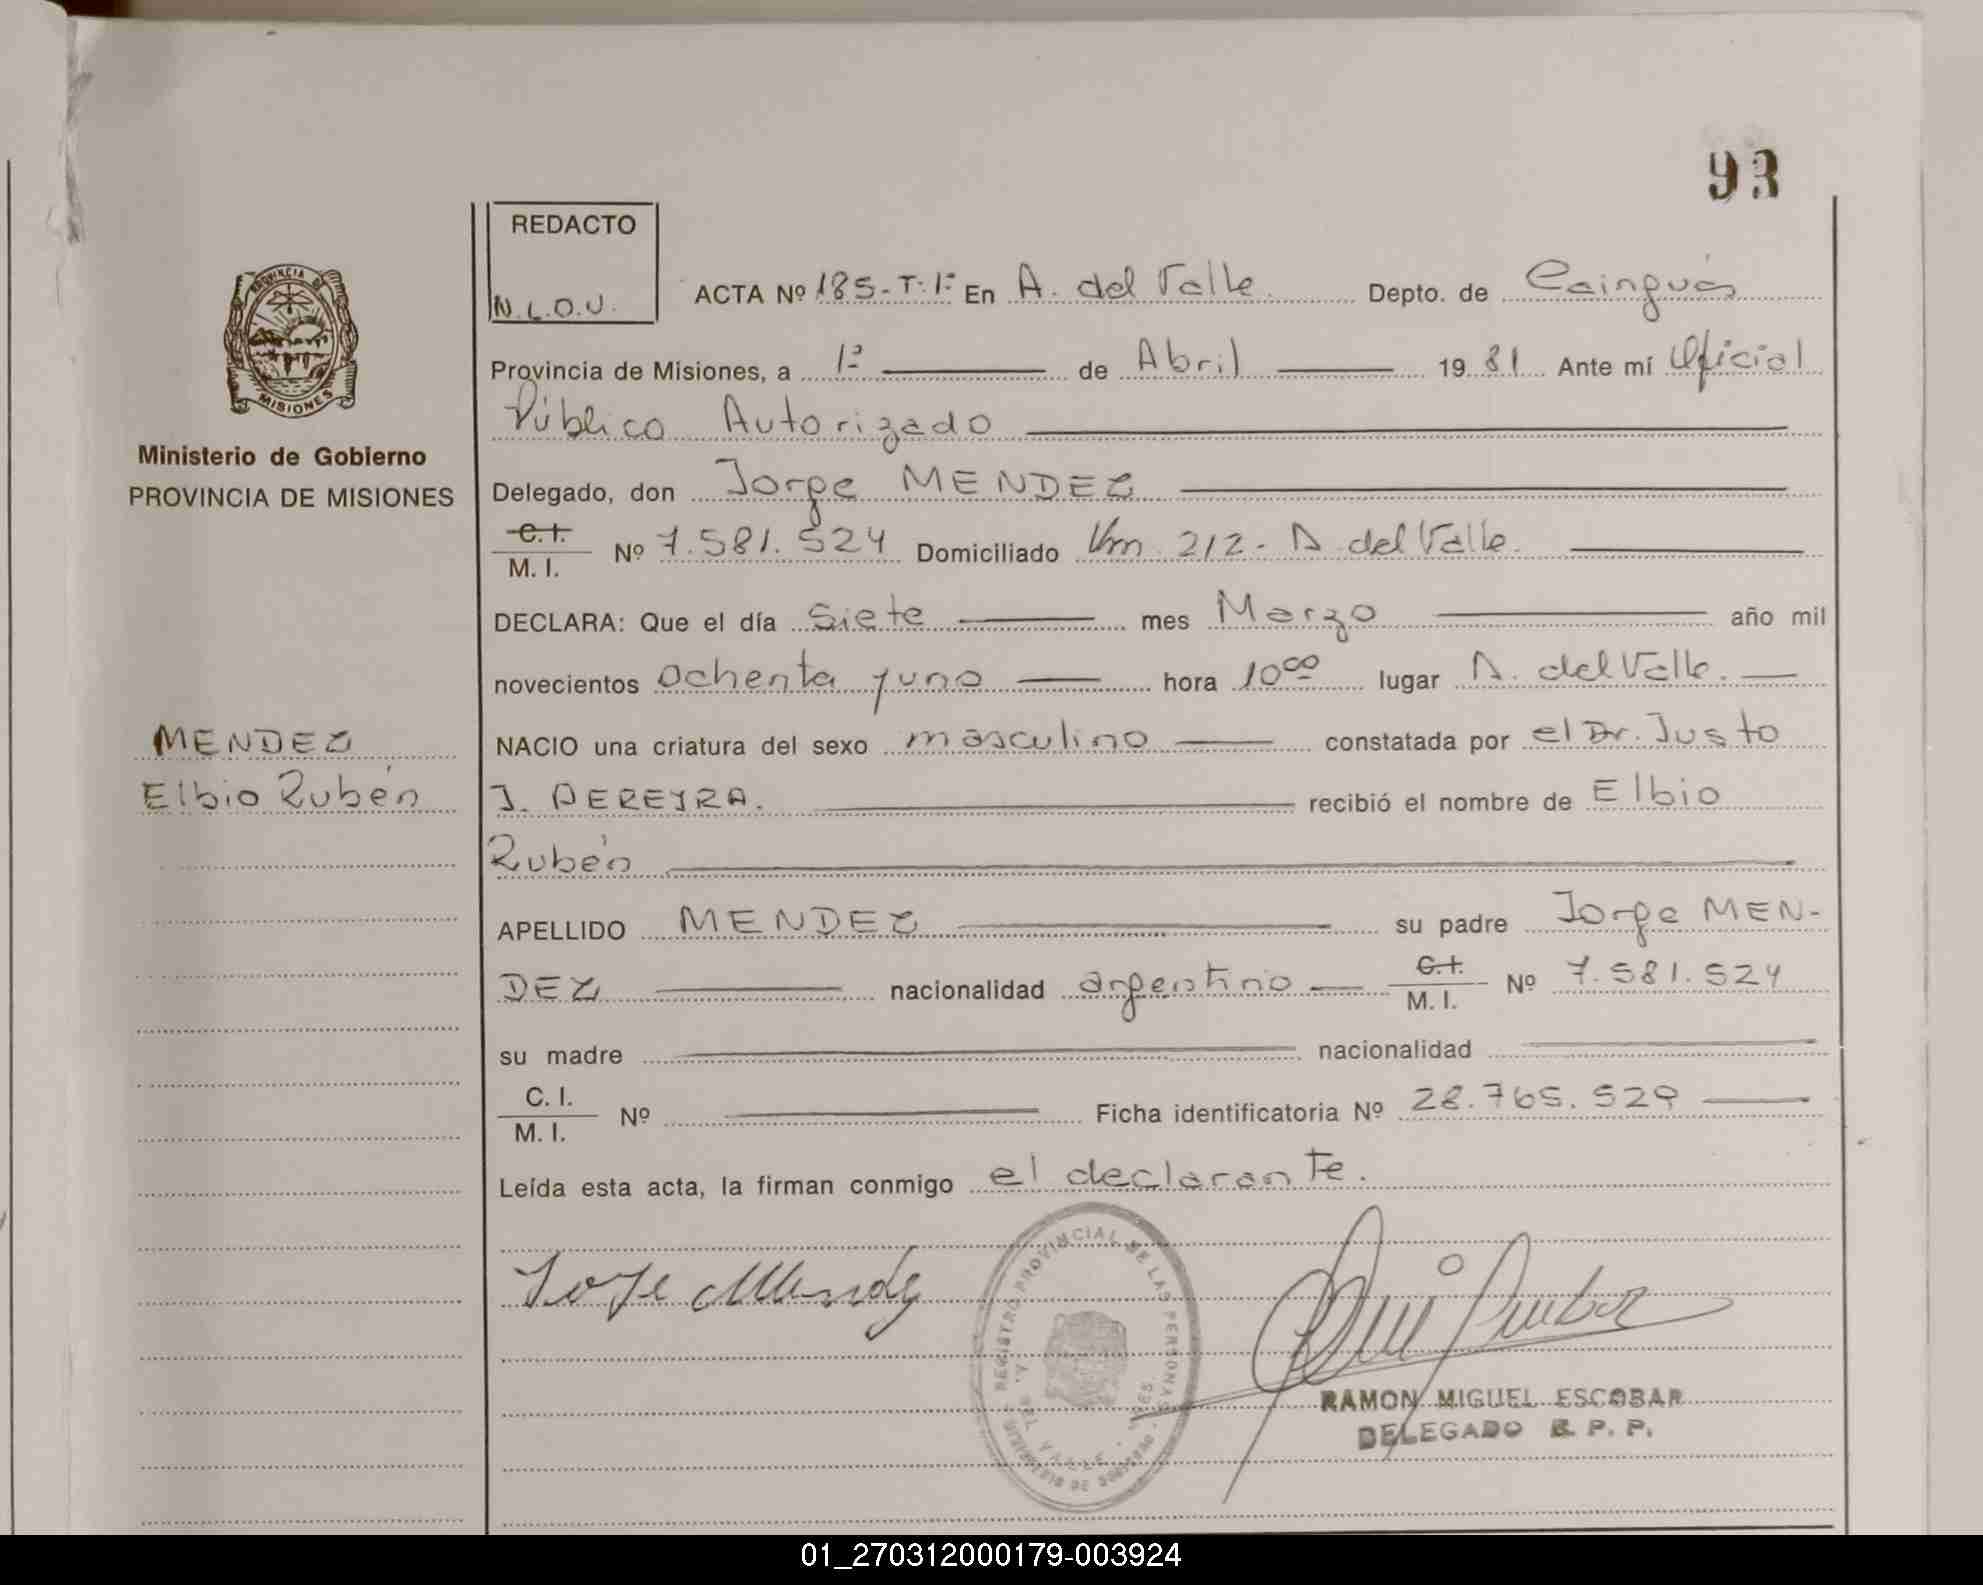 93
REDACTO
N.L.O.U.
ACTA Nº 185-T-1º En A. del Valle Depto. de Cainguás
Provincia de Misiones, a 1º de Abril 1981 Ante mí Oficial
Público Autorizado
Delegado, don Jorge MENDEZ
C. I.
M. I. Nº 7.581.524 Domiciliado Km 212- A. del Valle.
DECLARA: Que el día Siete mes Marzo año mil
novecientos Ochenta y uno hora 10⁰⁰ lugar A. del Valle.
NACIO una criatura del sexo masculino constatada por el Dr. Justo
J. PEREYRA. recibió el nombre de Elbio
Rubén
APELLIDO MENDEZ su padre Jorge MEN-
DEZ nacionalidad argentino C.I. M. I. Nº 7.581.524
su madre nacionalidad
C. I.
M. I. Nº Ficha identificatoria Nº 28.765.529
Leída esta acta, la firman conmigo el declarante.
Jorge Mendez
REGISTRO PROVINCIAL DE LAS PERSONAS
A. DEL VALLE - MNES.
MINISTERIO DE GOBIERNO
RAMON MIGUEL ESCOBAR
DELEGADO R. P. P.
PROVINCIA DE
MISIONES
Ministerio de Gobierno
PROVINCIA DE MISIONES
MENDEZ
Elbio Rubén
01_270312000179-003924